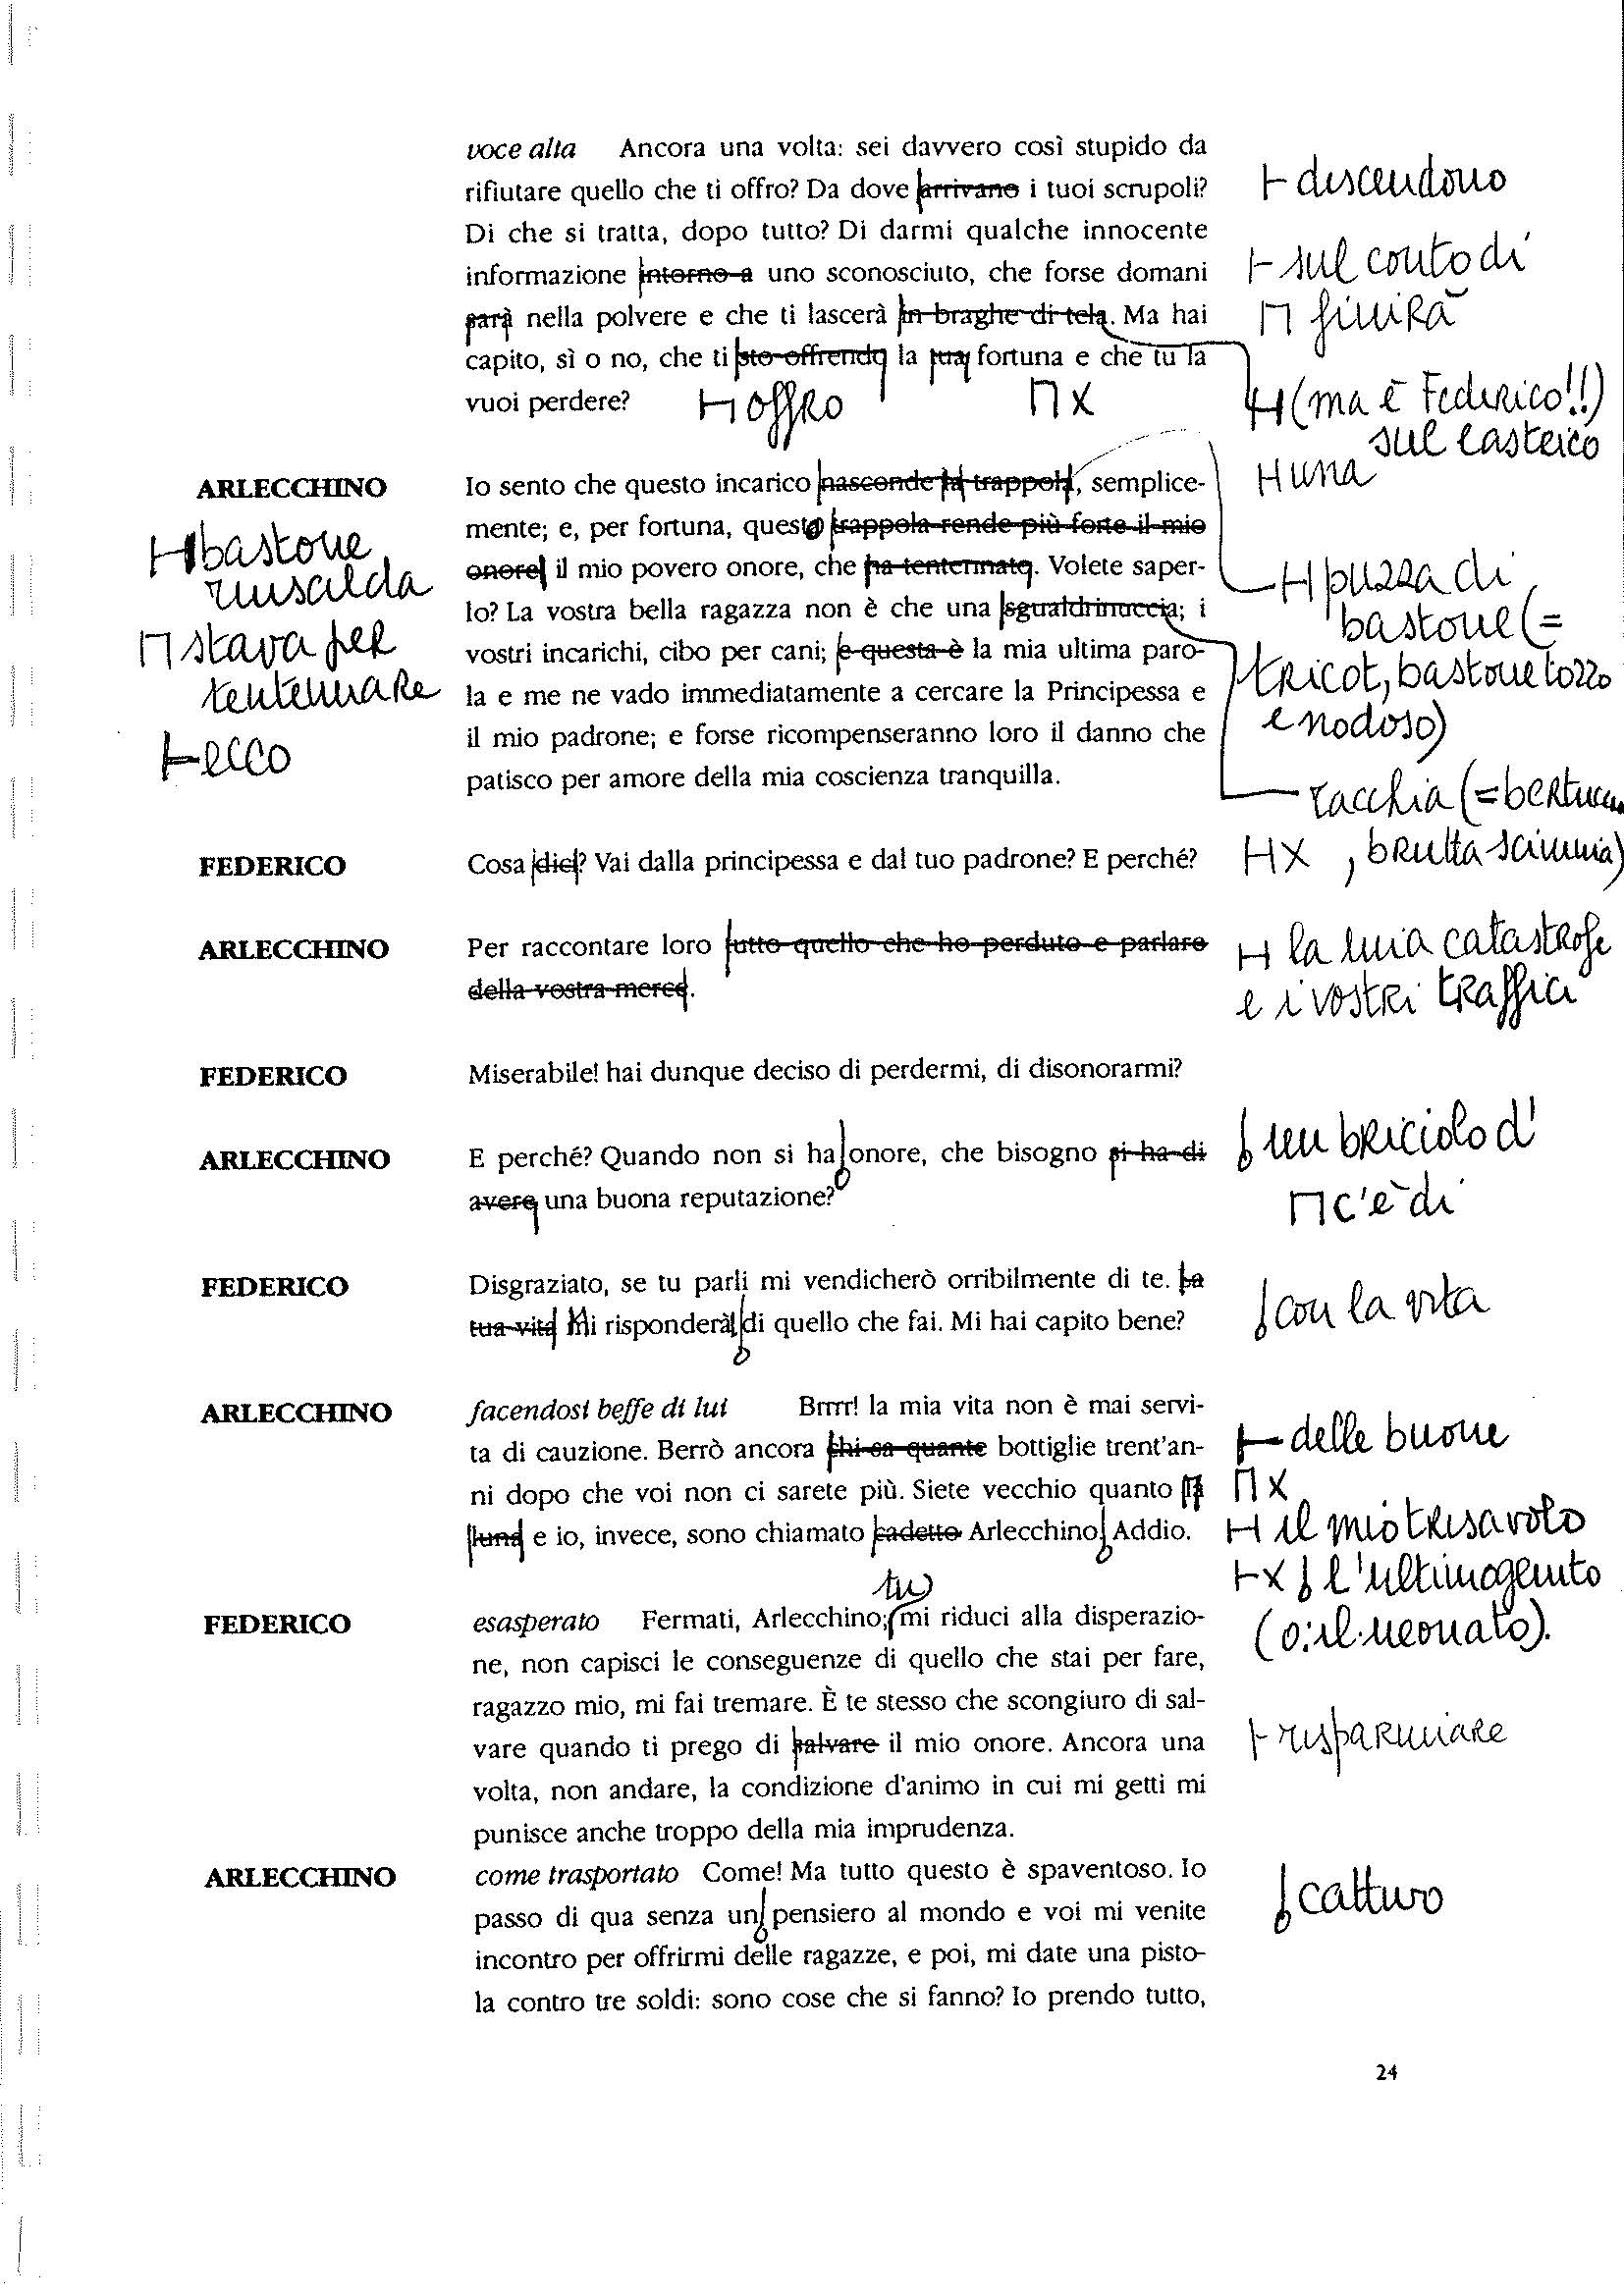 voce alta Ancora una volta: sei davvero così stupido da
rifiutare quello che ti offro? Da dove arrivano i tuoi scrupoli?
⊢ discendono
Di che si tratta, dopo tutto? Di darmi qualche innocente
informazione intorno a uno sconosciuto, che forse domani
⊢ sul conto di
sarà nella polvere e che ti lascerà in braghe di tela. Ma hai
⊓ finirà
capito, sì o no, che ti sto offrendo la tua fortuna e che tu la
vuoi perdere?
H offro
⊓ X
H (ma è Federico!!)
sul lastrico
ARLECCHINO Io sento che questo incarico nasconde la trappola, semplice-
H una
mente; e, per fortuna, questo trappola rende più forte il mio
onore il mio povero onore, che ha tentennato. Volete saper-
H bastone
rinsalda
H puzza di
bastone (=
tricot, bastone tozzo
e nodoso)
lo? La vostra bella ragazza non è che una sgualdrinuccia; i
vostri incarichi, cibo per cani; e questa è la mia ultima paro-
⊓ stava per
tentennare
la e me ne vado immediatamente a cercare la Principessa e
il mio padrone; e forse ricompenseranno loro il danno che
⊢ ecco
patisco per amore della mia coscienza tranquilla.
racchia (= bertuccia
, brutta scimmia)
FEDERICO Cosa dici? Vai dalla principessa e dal tuo padrone? E perché?
H X
ARLECCHINO Per raccontare loro tutto quello che ho perduto e parlare
della vostra merce.
H la mia catastrofe
e i vostri traffici
FEDERICO Miserabile! hai dunque deciso di perdermi, di disonorarmi?
ARLECCHINO E perché? Quando non si ha onore, che bisogno si ha di
avere una buona reputazione?
un briciolo d'
⊓ c'è di
FEDERICO Disgraziato, se tu parli mi vendicherò orribilmente di te. La
tua vita Mi risponderà di quello che fai. Mi hai capito bene?
con la vita
ARLECCHINO facendosi beffe di lui Brrrr! la mia vita non è mai servi-
ta di cauzione. Berrò ancora chi sa quante bottiglie trent'an-
⊢ delle buone
ni dopo che voi non ci sarete più. Siete vecchio quanto la
⊓ X
luna e io, invece, sono chiamato cadetto Arlecchino Addio.
H il mio trisavolo
⊢ X l'ultimogenito
(o: il neonato).
tu
FEDERICO esasperato Fermati, Arlecchino; mi riduci alla disperazio-
ne, non capisci le conseguenze di quello che stai per fare,
ragazzo mio, mi fai tremare. È te stesso che scongiuro di sal-
vare quando ti prego di salvare il mio onore. Ancora una
⊢ risparmiare
volta, non andare, la condizione d'animo in cui mi getti mi
punisce anche troppo della mia imprudenza.
ARLECCHINO come trasportato Come! Ma tutto questo è spaventoso. Io
passo di qua senza un pensiero al mondo e voi mi venite
cattivo
incontro per offrirmi delle ragazze, e poi, mi date una pisto-
la contro tre soldi: sono cose che si fanno? Io prendo tutto,
24